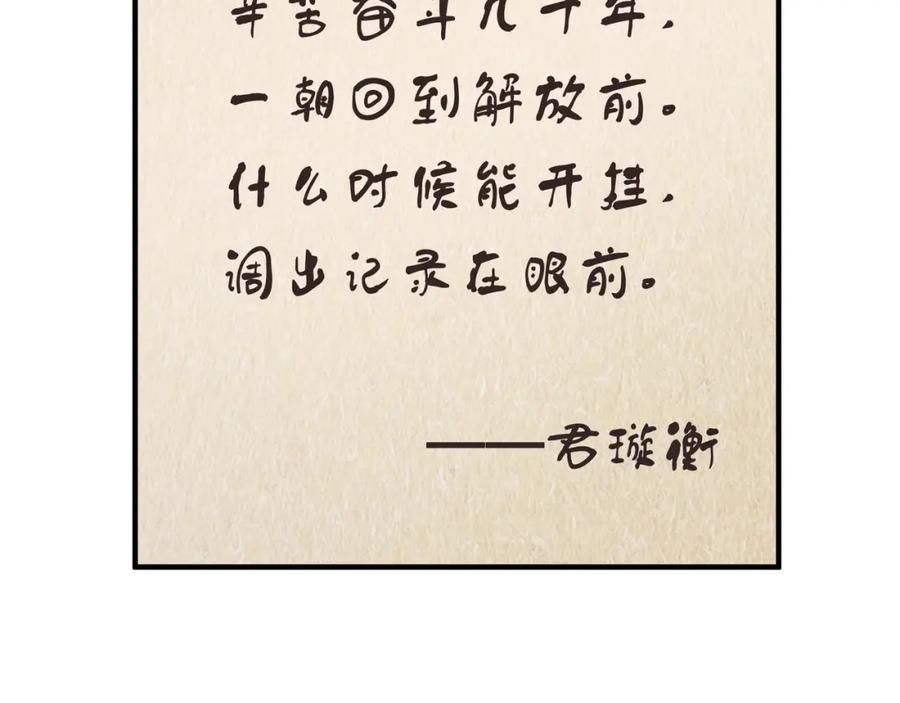 辛苦奋斗几十年，
一朝回到解放前。
什么时候能开挂，
调出记录在眼前。
——君璇衡